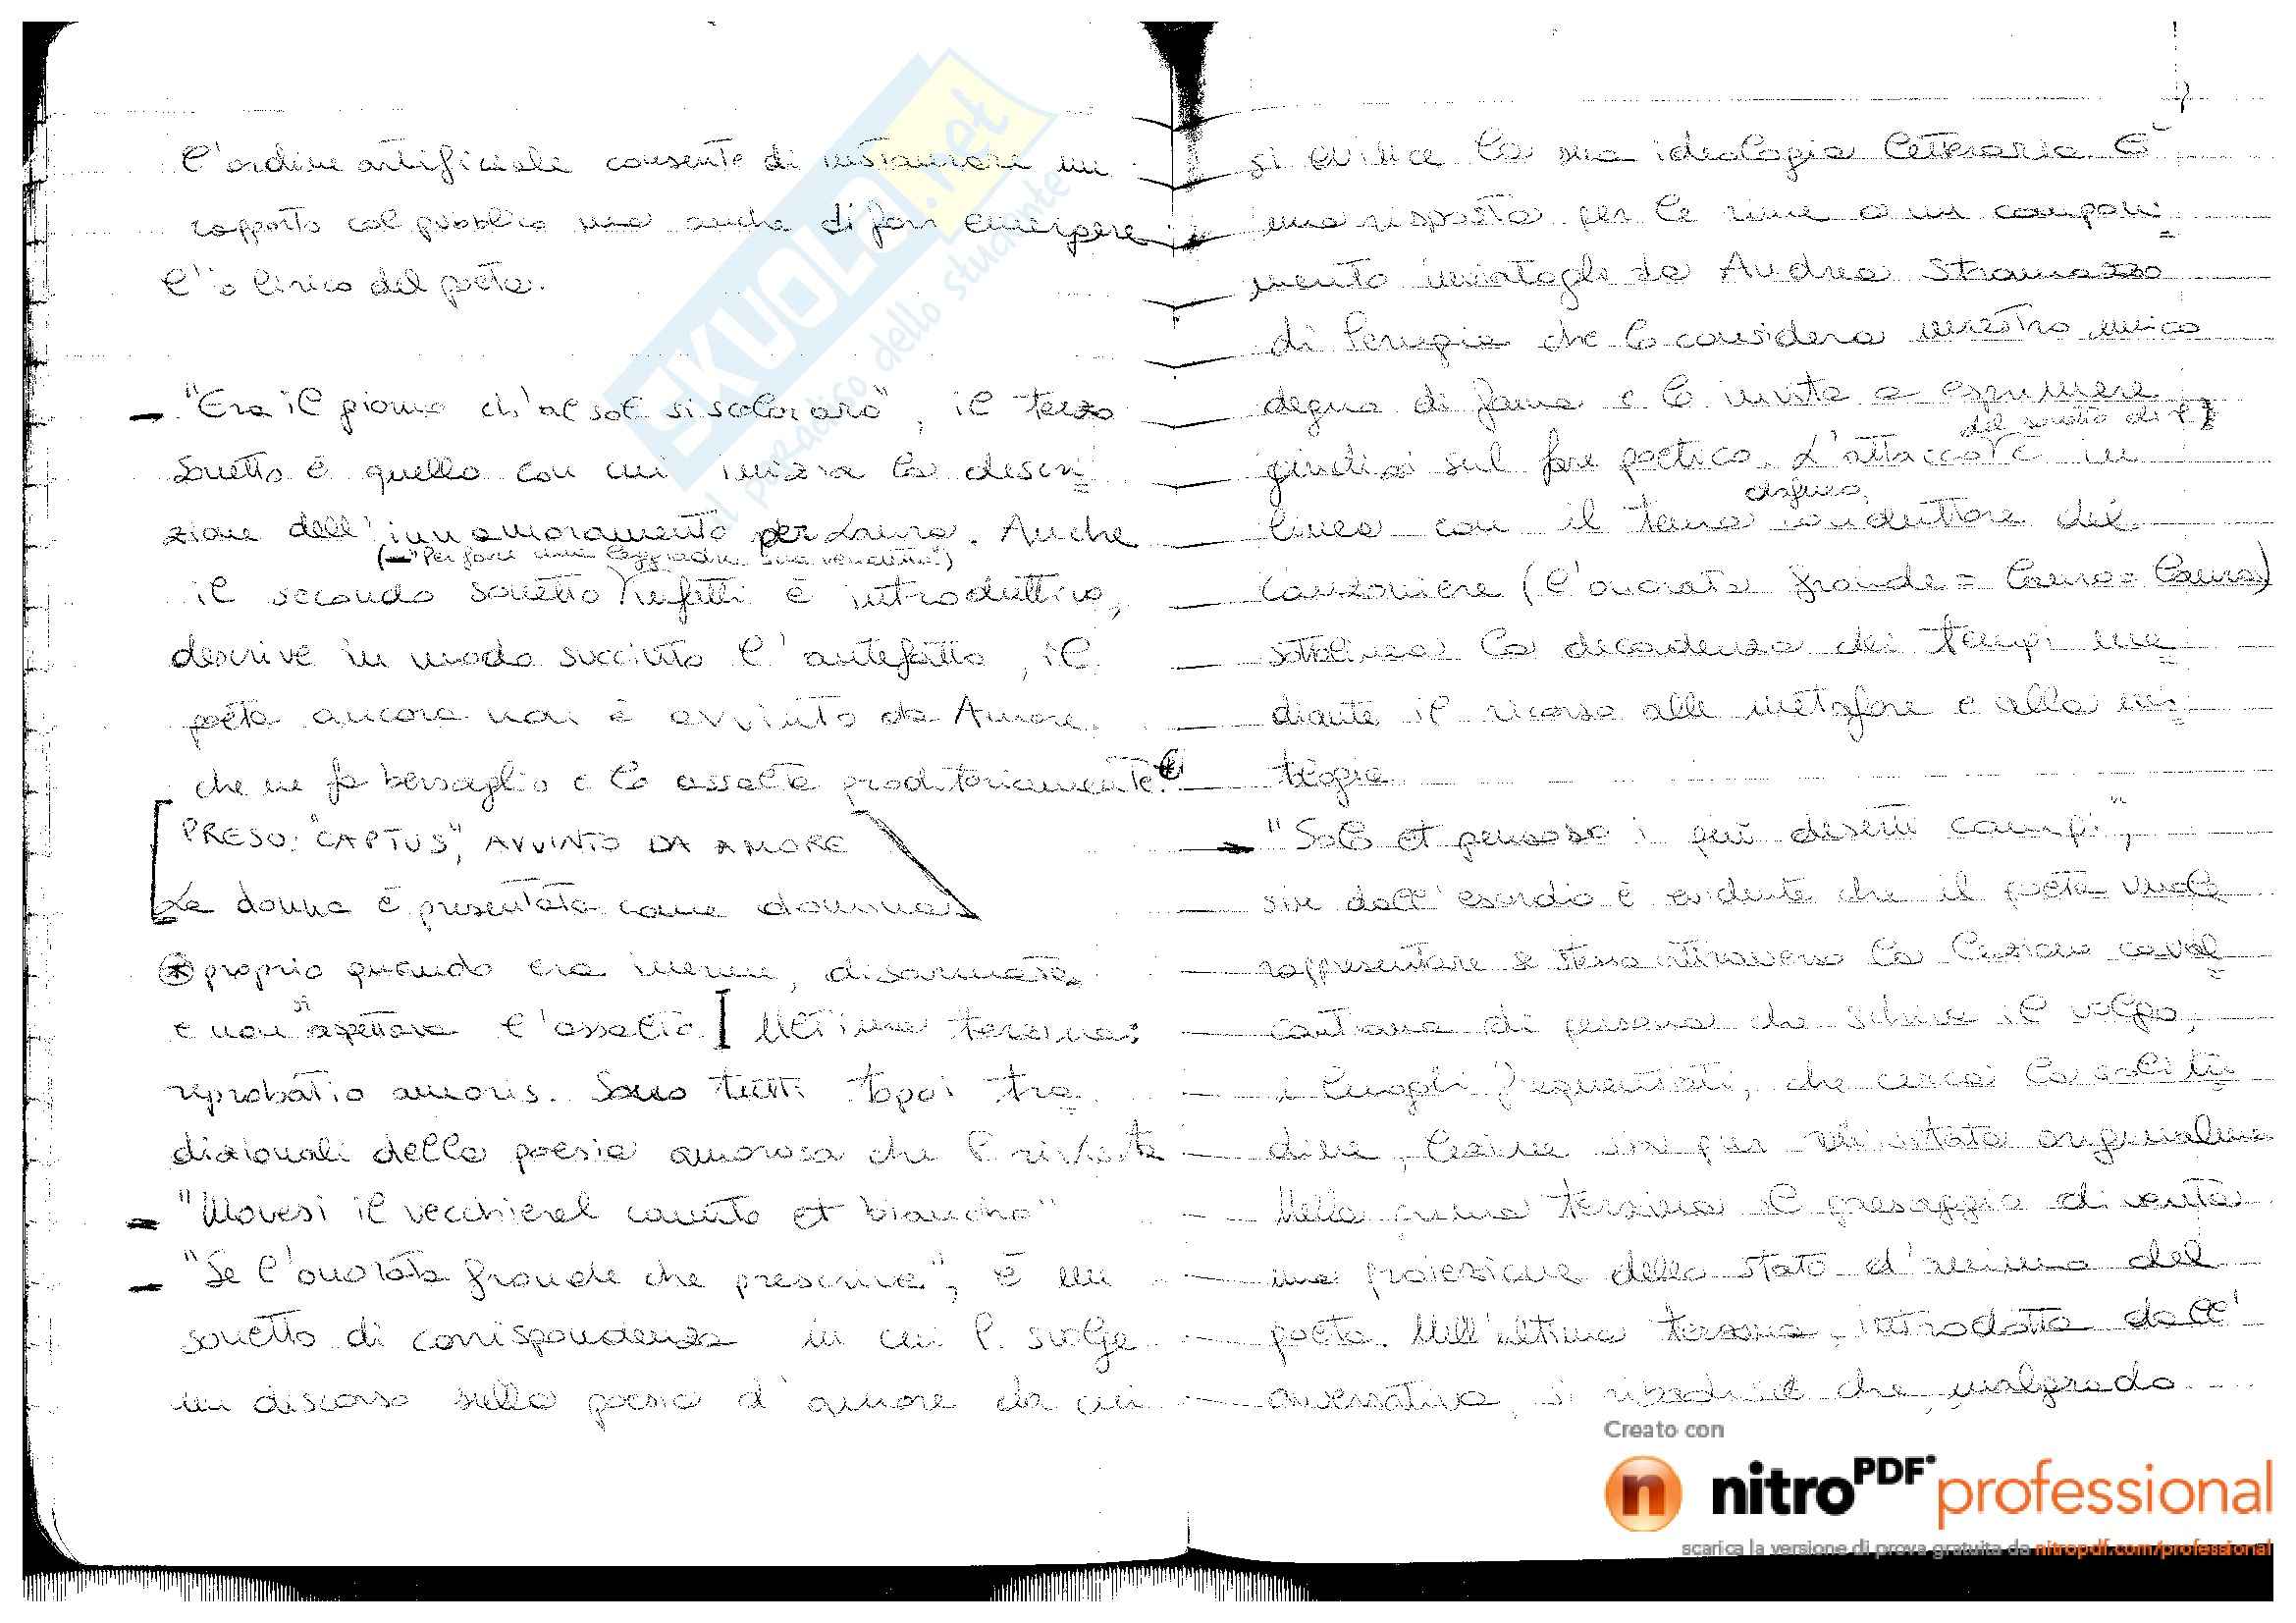 l'ordine artificiale consente di instaurare un
rapporto col pubblico ma anche di far emergere
l'io lirico del poeta.
- "Era il giorno ch'al sol si scoloraro", il terzo
sonetto è quello con cui inizia la descri=
zione dell'innamoramento per Laura. Anche
(- "Per fare una leggiadra sua vendetta")
il secondo sonetto infatti è introduttivo,
descrive in modo succinto l'antefatto, il
poeta ancora non è avvinto da Amore
che ne fa bersaglio e lo assalta proditoriamente.*
[PRESO: "CAPTUS", AVVINTO DA AMORE
La donna è presentata come domina]
* proprio quando era inerme, disarmato
e non si aspettava l'assalto] Ultima terzina:
reprobatio amoris. Sono tutti topoi tra=
dizionali della poesia amorosa che P. rivisita
- "Movesi il vecchierel canuto et biancho"
- "Se l'onorata fronde che prescrive", è un
sonetto di corrispondenza in cui P. svolge
un discorso sulla poesia d'amore da cui
7
si evince la sua ideologia letteraria. È
una risposta per le rime a un componi=
mento inviatogli da Andrea Stramazzo
di Perugia che lo considera maestro unico
degno di fama e lo invita a esprimere
giudizi sul fare poetico. L'attacco del sonetto di P. è in
linea con il tema dafneo, conduttore del
Canzoniere (l'onorata fronde = lauro = Laura)
sottolinea la decadenza dei tempi me=
diante il ricorso alle metafore e alla mi=
tologia
- "Solo et pensoso i più deserti campi",
sin dall'esordio è evidente che il poeta vuole
rappresentare se stesso attraverso la lezione caval=
cantiana di persona che schiva il volgo,
i luoghi frequentati, che cerca la solitu=
dine, lezione rivisitata originalmente
Nella prima terzina il paesaggio diventa
una proiezione dello stato d'animo del
poeta. Nell'ultima terzina, introdotta dall'
avversativa, si ribadisce che, malgrado
SKUOLA.net
il paradiso dello studente
Creato con
nitroPDF professional
scarica la versione di prova gratuita da nitropdf.com/professional